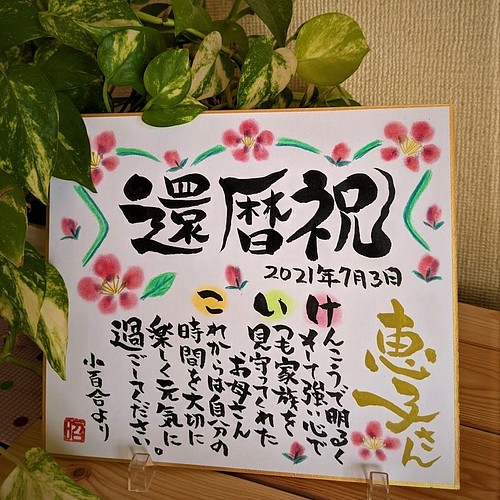 還暦祝
2021年7月3日
恵子さん
けんこうで明るく
そして強い心で
いつも家族を
見守ってくれた
お母さん
これからは自分の
時間を大切に
楽しく元気に
過ごしてください。
小百合より